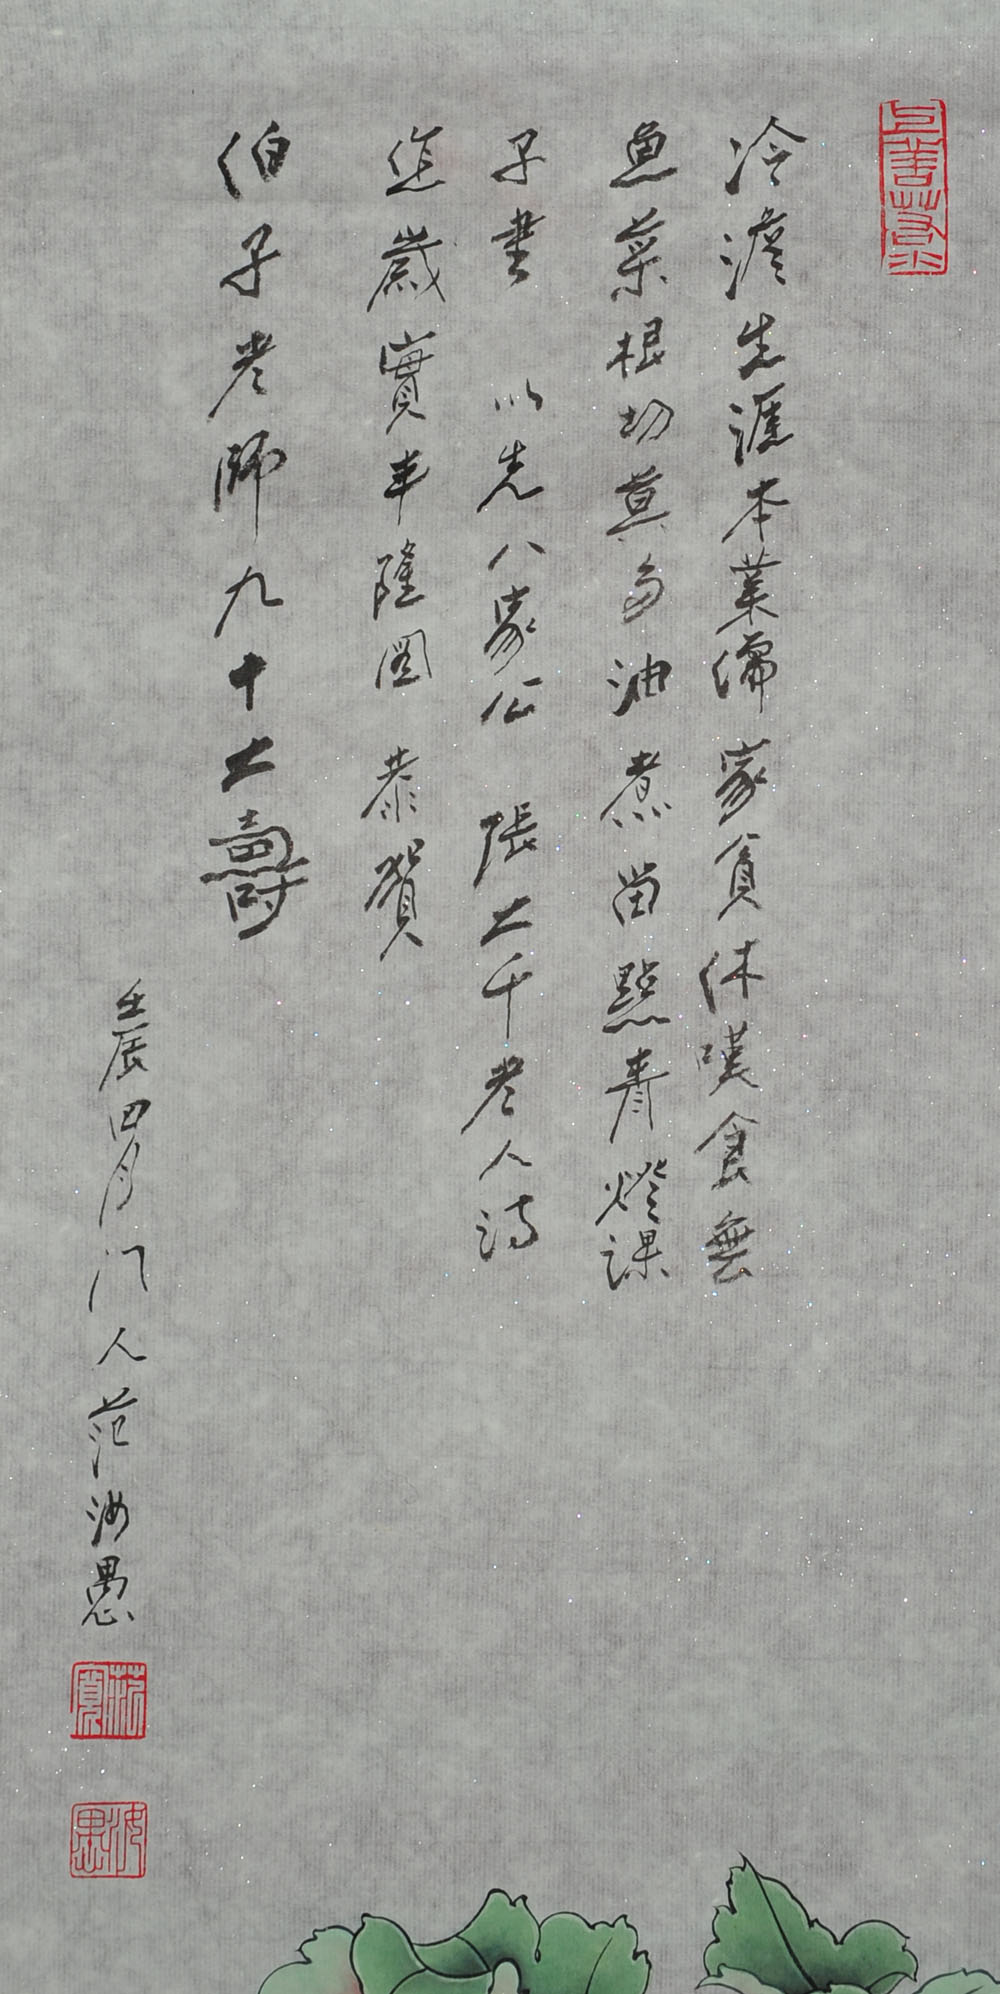 冷澹生涯本業儒家貧休嘆食無
魚菜根切莫多油煮留點青燈課
子書 以先八家公張大千老人詩
造歲實年隆圖 恭賀
伯子老師九十大壽
壬辰四月门人范汝愚